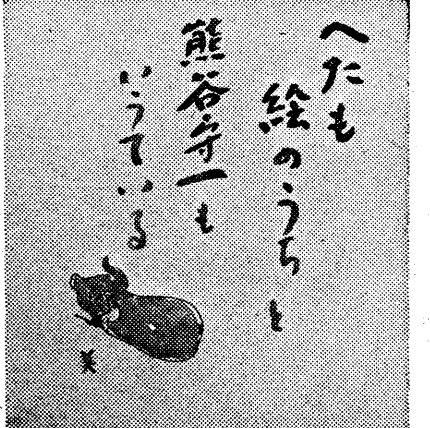 へたも
絵のうちと
熊谷守一も
いうている